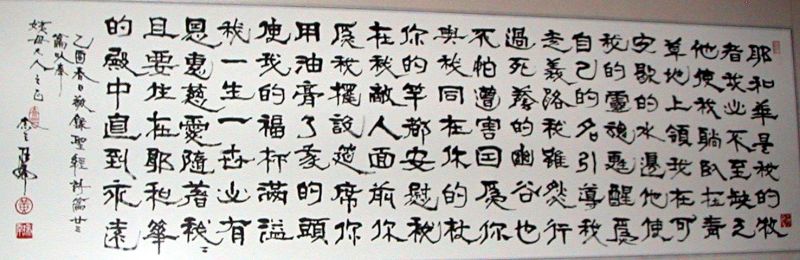 耶和華是我的牧
者我必不至缺乏
他使我躺臥在青
草地上領我在可
安歇的水邊他使
我的靈魂甦醒爲
自己的名引導我
走義路我雖然行
過死蔭的幽谷也
不怕遭害因爲你
與我同在你的杖
你的竿都安慰我
在我敵人面前你
爲我擺設筵席你
用油膏了我的頭
使我的福杯滿溢
我一生一世必有
恩惠慈愛隨著我
且要住在耶和華
的殿中直到永遠
乙酉春日敬錄聖經詩篇廿三
篇以奉
姨母大人之正